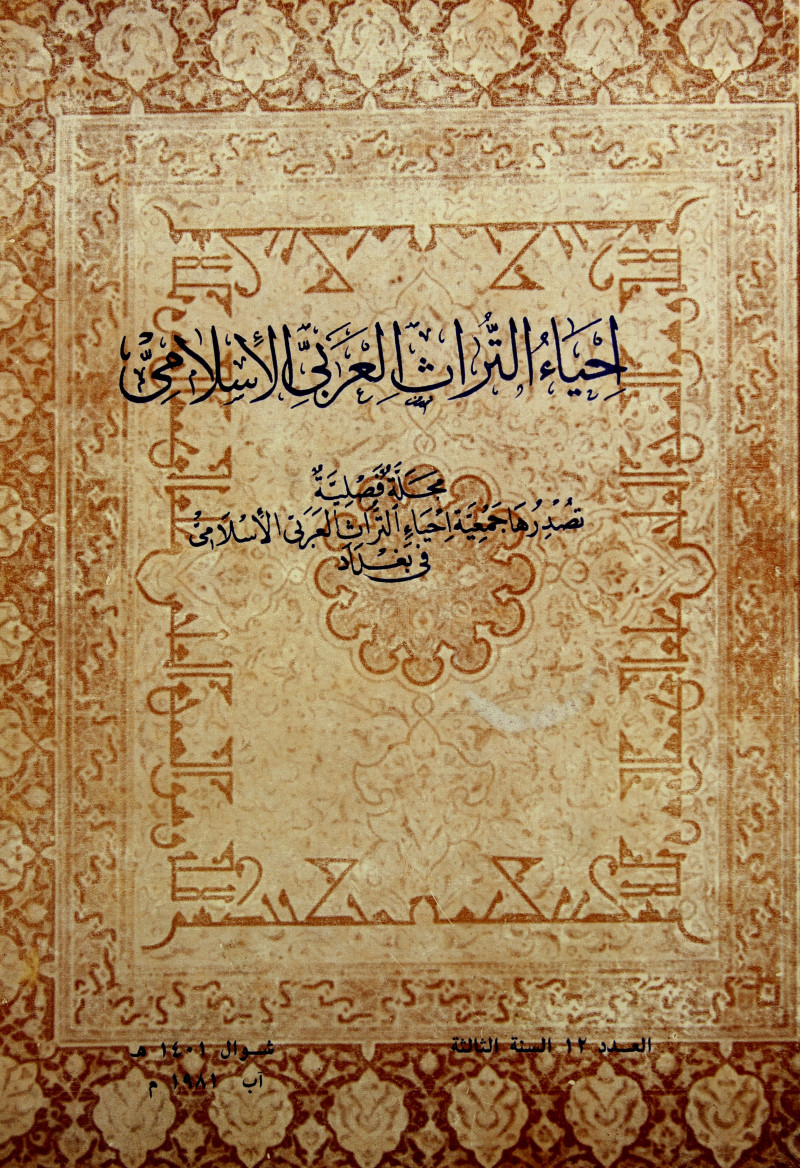 إِحْيَاءُ التُّرَاثِ العَرَبِيِّ الإِسْلَامِيِّ
مَجَلَّةٌ فَصْلِيَّةٌ
تُصْدِرُهَا جَمْعِيَّةُ إِحْيَاءِ التُّرَاثِ العَرَبِيِّ الأِسْلَامِيْ
فِي بَغْدَاد
العدد ١٢ السنة الثالثة
شوال ١٤٠١ هـ
آب ١٩٨١ م